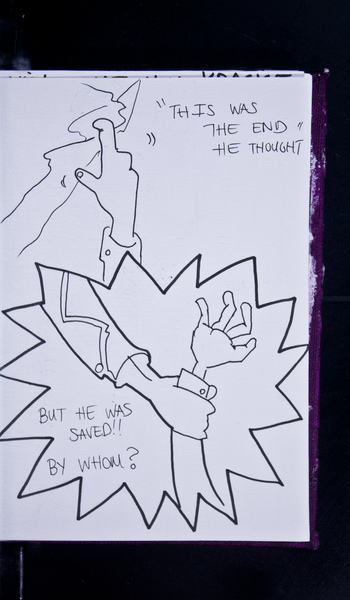 "THIS WAS
THE END"
HE THOUGHT
BUT HE WAS
SAVED!!
BY WHOM?